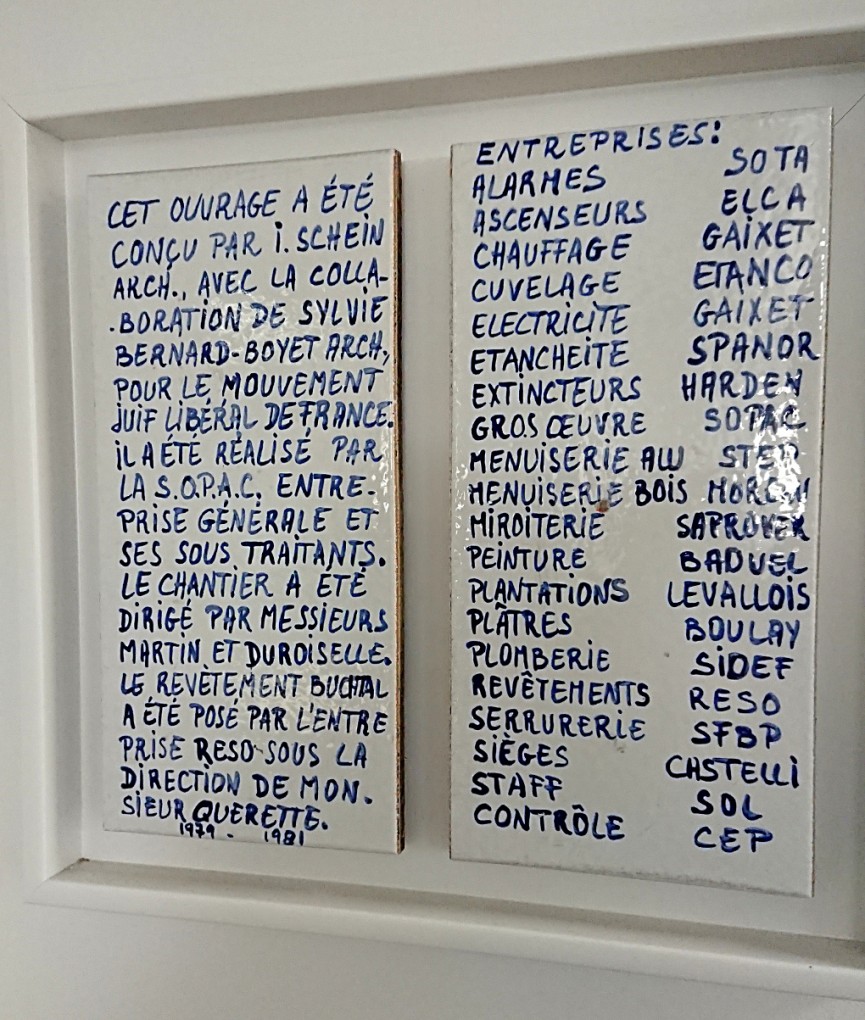 CET OUVRAGE A ÉTÉ
CONÇU PAR I. SCHEIN
ARCH., AVEC LA COLLA-
.BORATION DE SYLVIE
BERNARD-BOYET ARCH,
POUR LE MOUVEMENT
JUIF LIBÉRAL DE FRANCE.
IL A ÉTÉ RÉALISÉ PAR
LA S.O.P.A.C. ENTRE-
PRISE GÉNÉRALE ET
SES SOUS TRAITANTS.
LE CHANTIER A ÉTÉ
DIRIGÉ PAR MESSIEURS
MARTIN ET DUROISELLE.
LE REVÊTEMENT BUCHTAL
A ÉTÉ POSÉ PAR L'ENTRE
PRISE RESO SOUS LA
DIRECTION DE MON.
SIEUR QUERETTE.
1979 - 1981
ENTREPRISES:
ALARMES SOTA
ASCENSEURS ELCA
CHAUFFAGE GAIXET
CUVELAGE ETANCO
ELECTRICITE GAIXET
ETANCHEITE SPANOR
EXTINCTEURS HARDEN
GROS ŒUVRE SOPAC
MENUISERIE ALU
MENUISERIE BOIS
MIROITERIE SAPROVER
PEINTURE BADUEL
PLANTATIONS LEVALLOIS
PLÂTRES BOULAY
PLOMBERIE SIDEF
REVÊTEMENTS RESO
SERRURERIE SFBP
SIÈGES CASTELLI
STAFF SOL
CONTRÔLE CEP